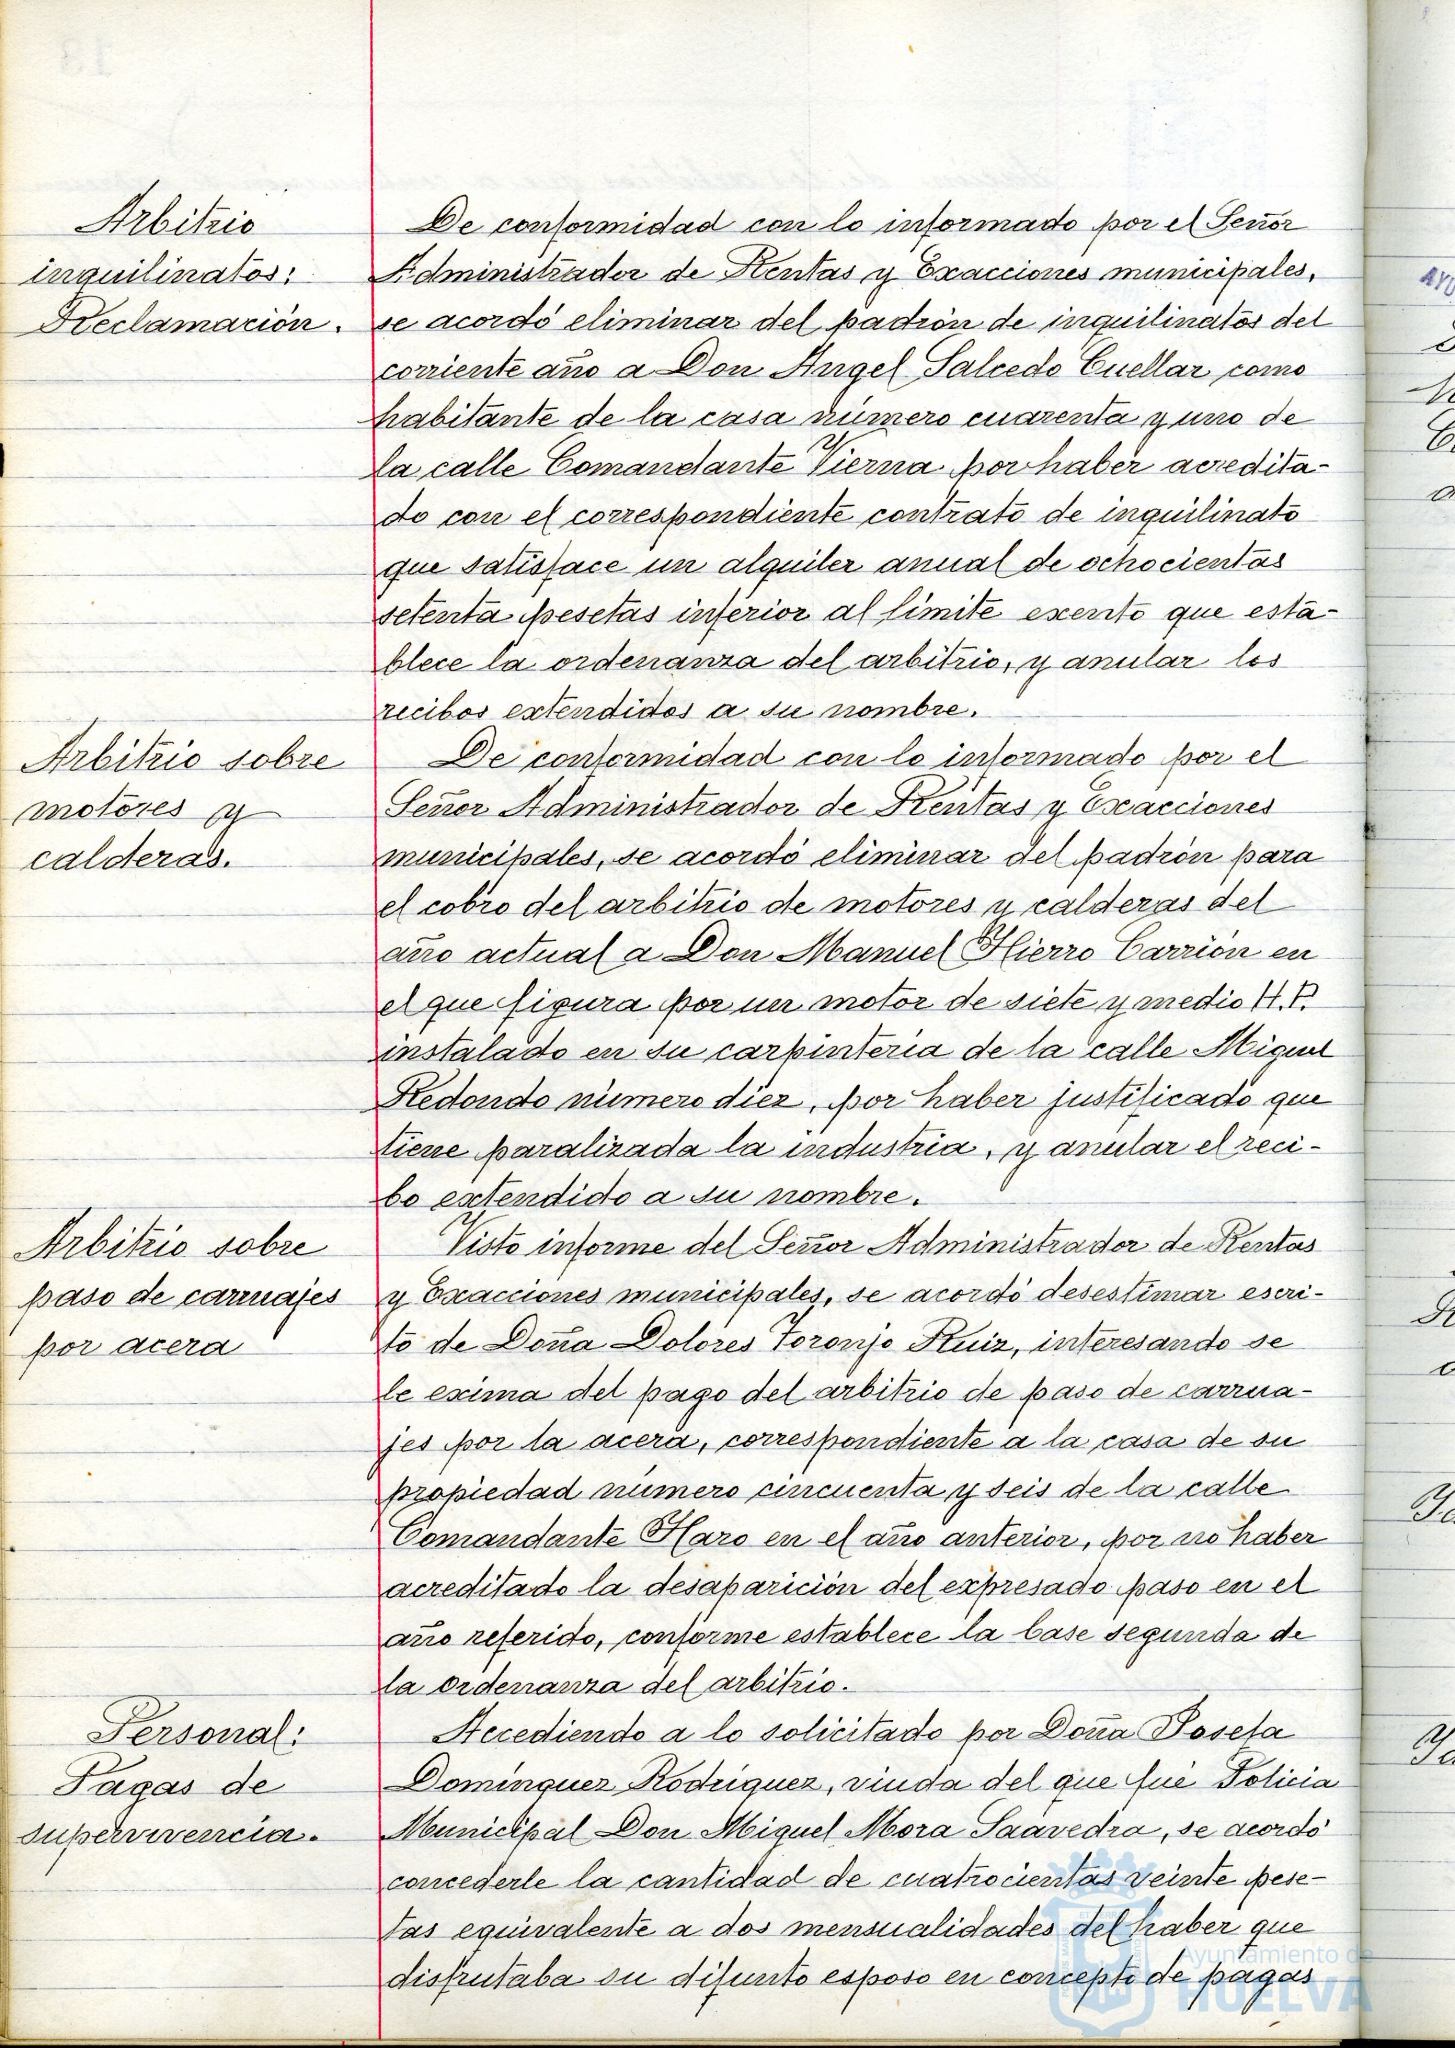 Arbitrio
inquilinatos:
Reclamación.
De conformidad con lo informado por el Señor
Administrador de Rentas y Exacciones municipales,
se acordó eliminar del padrón de inquilinatos del
corriente año a Don Angel Salcedo Cuellar como
habitante de la casa número cuarenta y uno de
la calle Comandante Vierna por haber acredita-
do con el correspondiente contrato de inquilinato
que satisface un alquiler anual de ochocientas
setenta pesetas inferior al límite exento que esta-
blece la ordenanza del arbitrio, y anular los
recibos extendidos a su nombre.
Arbitrio sobre
motores y
calderas.
De conformidad con lo informado por el
Señor Administrador de Rentas y Exacciones
municipales, se acordó eliminar del padrón para
el cobro del arbitrio de motores y calderas del
año actual a Don Manuel Hierro Carrión en
el que figura por un motor de siete y medio H.P.
instalado en su carpintería de la calle Miguel
Redondo número diez, por haber justificado que
tiene paralizada la industria, y anular el reci-
bo extendido a su nombre.
Arbitrio sobre
paso de carruajes
por acera
Visto informe del Señor Administrador de Rentas
y Exacciones municipales, se acordó desestimar escri-
to de Doña Dolores Toronjo Ruiz, interesando se
le exima del pago del arbitrio de paso de carrua-
jes por la acera, correspondiente a la casa de su
propiedad número cincuenta y seis de la calle
Comandante Haro en el año anterior, por no haber
acreditado la desaparición del expresado paso en el
año referido, conforme establece la base segunda de
la ordenanza del arbitrio.
Personal:
Pagas de
supervivencia.
Accediendo a lo solicitado por Doña Josefa
Domínguez Rodríguez, viuda del que fué Policía
Municipal Don Miguel Mora Saavedra, se acordó
concederle la cantidad de cuatrocientas veinte pese-
tas equivalente a dos mensualidades del haber que
disfrutaba su difunto esposo en concepto de pagas
Ayuntamiento de
HUELVA